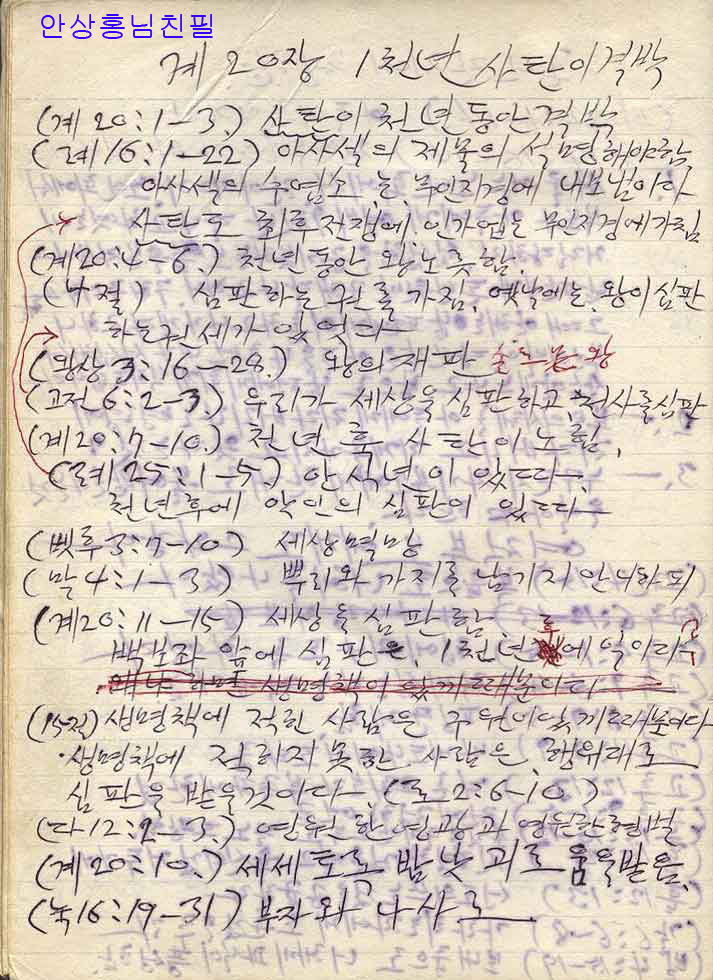 안상홍님친필
계 20장 1천년 사탄이결박
(계 20:1-3.) 산탄이 천년동안 결박
(레16:1-22) 아사셀의 제물의 설명해야함
아사셀의 수염소는, 무인지경에 내보냄이다
사탄도 최후전쟁에 인가없는 무인지경에가침
(계20:4-6.) 천년동안 왕노릇함.
(4절) 심판하는 권를 가짐. 옛날에는, 왕이심판
하는권세가 있엇다
(왕상 3:16-28.) 왕의 재판 솔로몬 왕
(고전 6:2-3.) 우리가 세상을 심판하고, 천사를심판
(계20:7-10.) 천년 후 사탄이 노힘,
(레25:1-5) 안식년이 있따,
천년후에 악인의 심판이 있따,
(벳후3:7-10) 세상멱망
(말4:1-3) 뿌리와 가지를 남기지 안니하되
(계20:11-15) 세상을 심판함
백보좌 앞에 심판은, 1천년 후에 일이라고
생명책이 있끼때문이다
(15절) 생명책에 적힌 사람은 구원이있끼때문이다
·생명책에 적히지못한 사람은 행위대로
심판을 받을것이다. (로2:6-10.)
(다12:2-3.) 영원한영광과 영원한형벌
(계20:10.) 세세토록 밤낮 괴로움을받음.
(눅16:19-31) 부자와 나사로